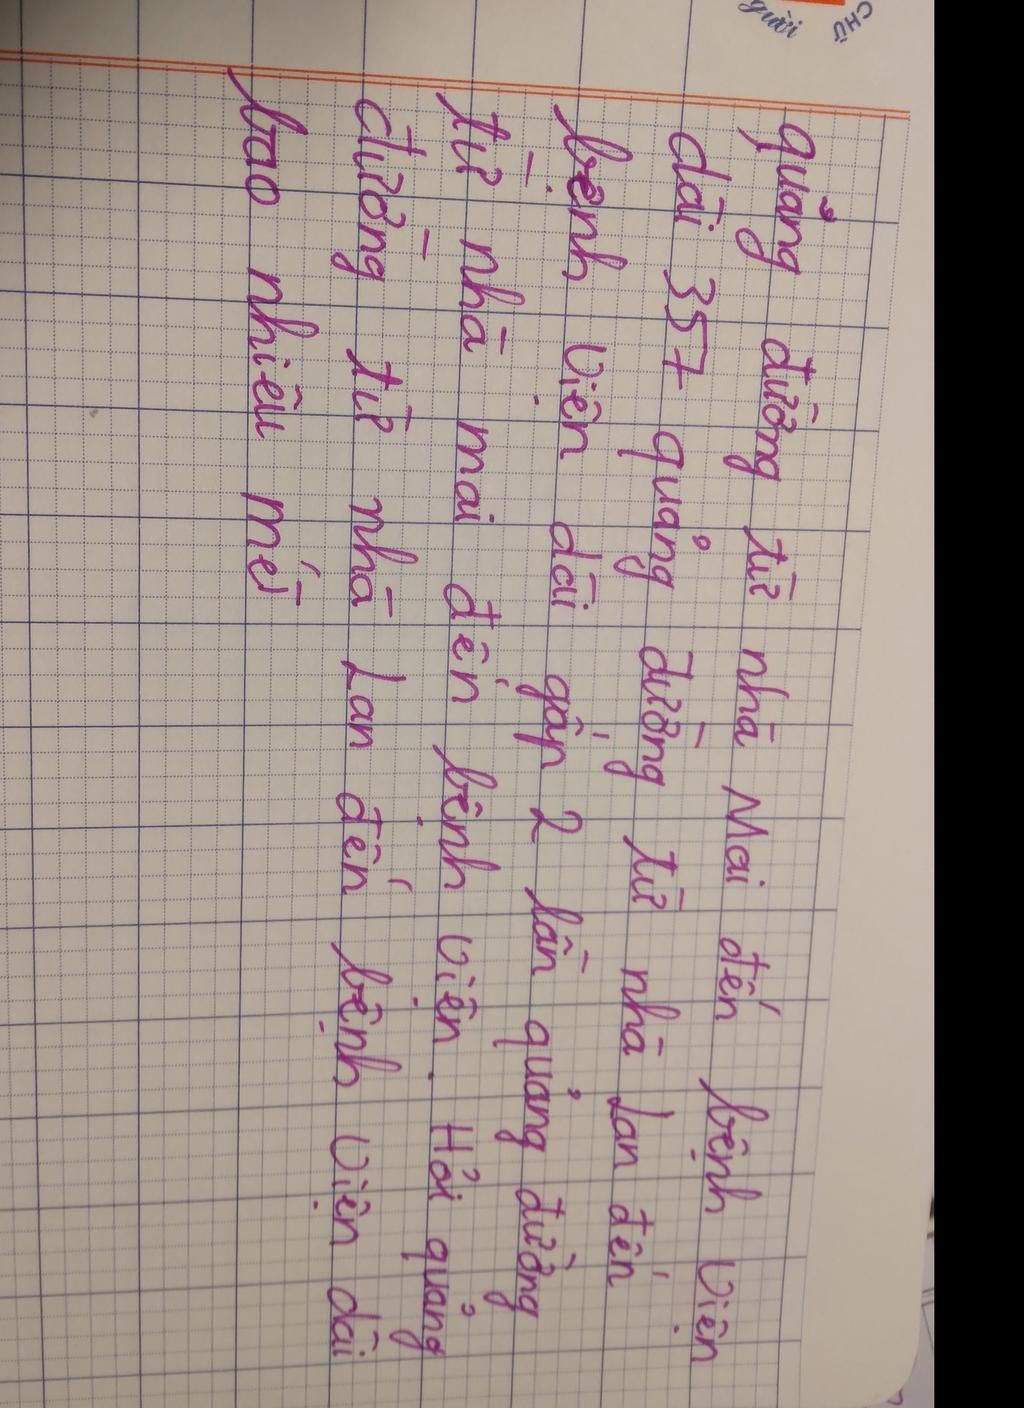 người CHỮ
quảng đường từ nhà Mai đến bệnh viện
dài 357 quảng đường từ nhà Lan đến
bệnh viện dài gấp 2 lần quảng đường
từ nhà mai đến bệnh viện. Hỏi quảng
đường từ nhà Lan đến bệnh viện dài
bao nhiêu mét